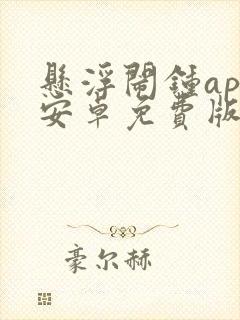 懸浮鬧鍾ap
安卓免費版
豪尔赫